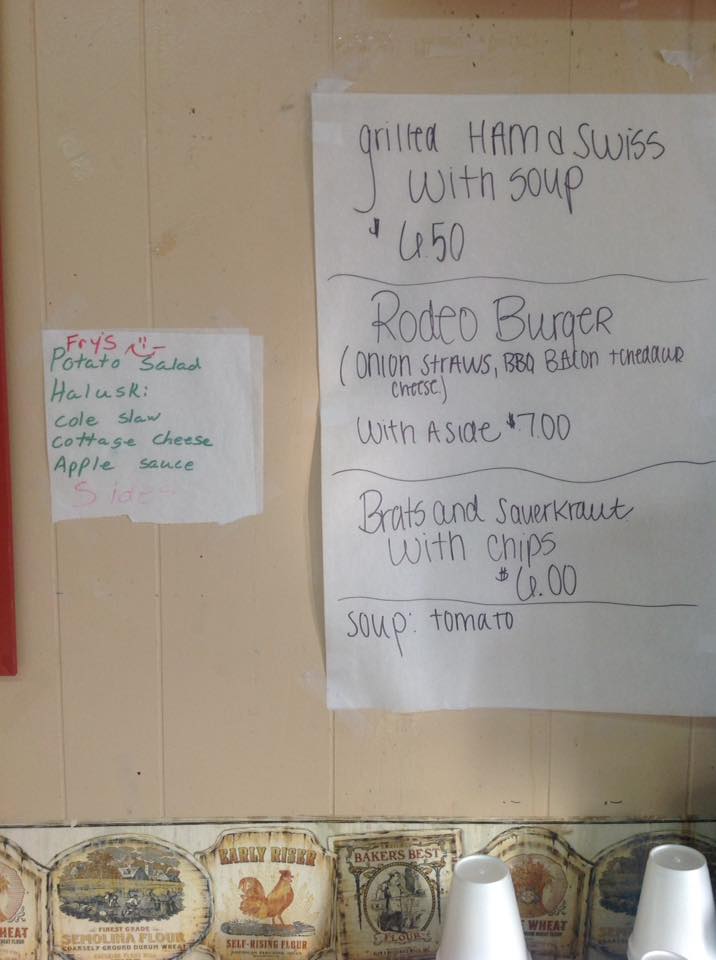 grilled HAM & SWISS
with soup
$ 6.50
Rodeo Burger
(onion straws, BBQ Bacon + cheddar
cheese)
With A side $7.00
Brats and Sauerkraut
with chips
$6.00
soup: tomato
Fry's
Potato Salad
Haluski
Cole slaw
Cottage Cheese
Apple sauce
Sides
FINEST GRADE
SEMOLINA FLOUR
COARSELY GROUND DURUM WHEAT
EARLY RISER
SELF-RISING FLOUR
BAKERS BEST
FLOUR
WHEAT
HEAT